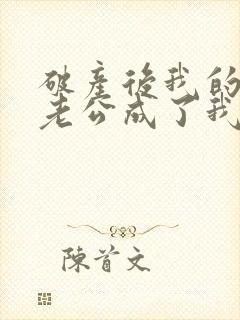 破產後我的
老公成了我
陳首文